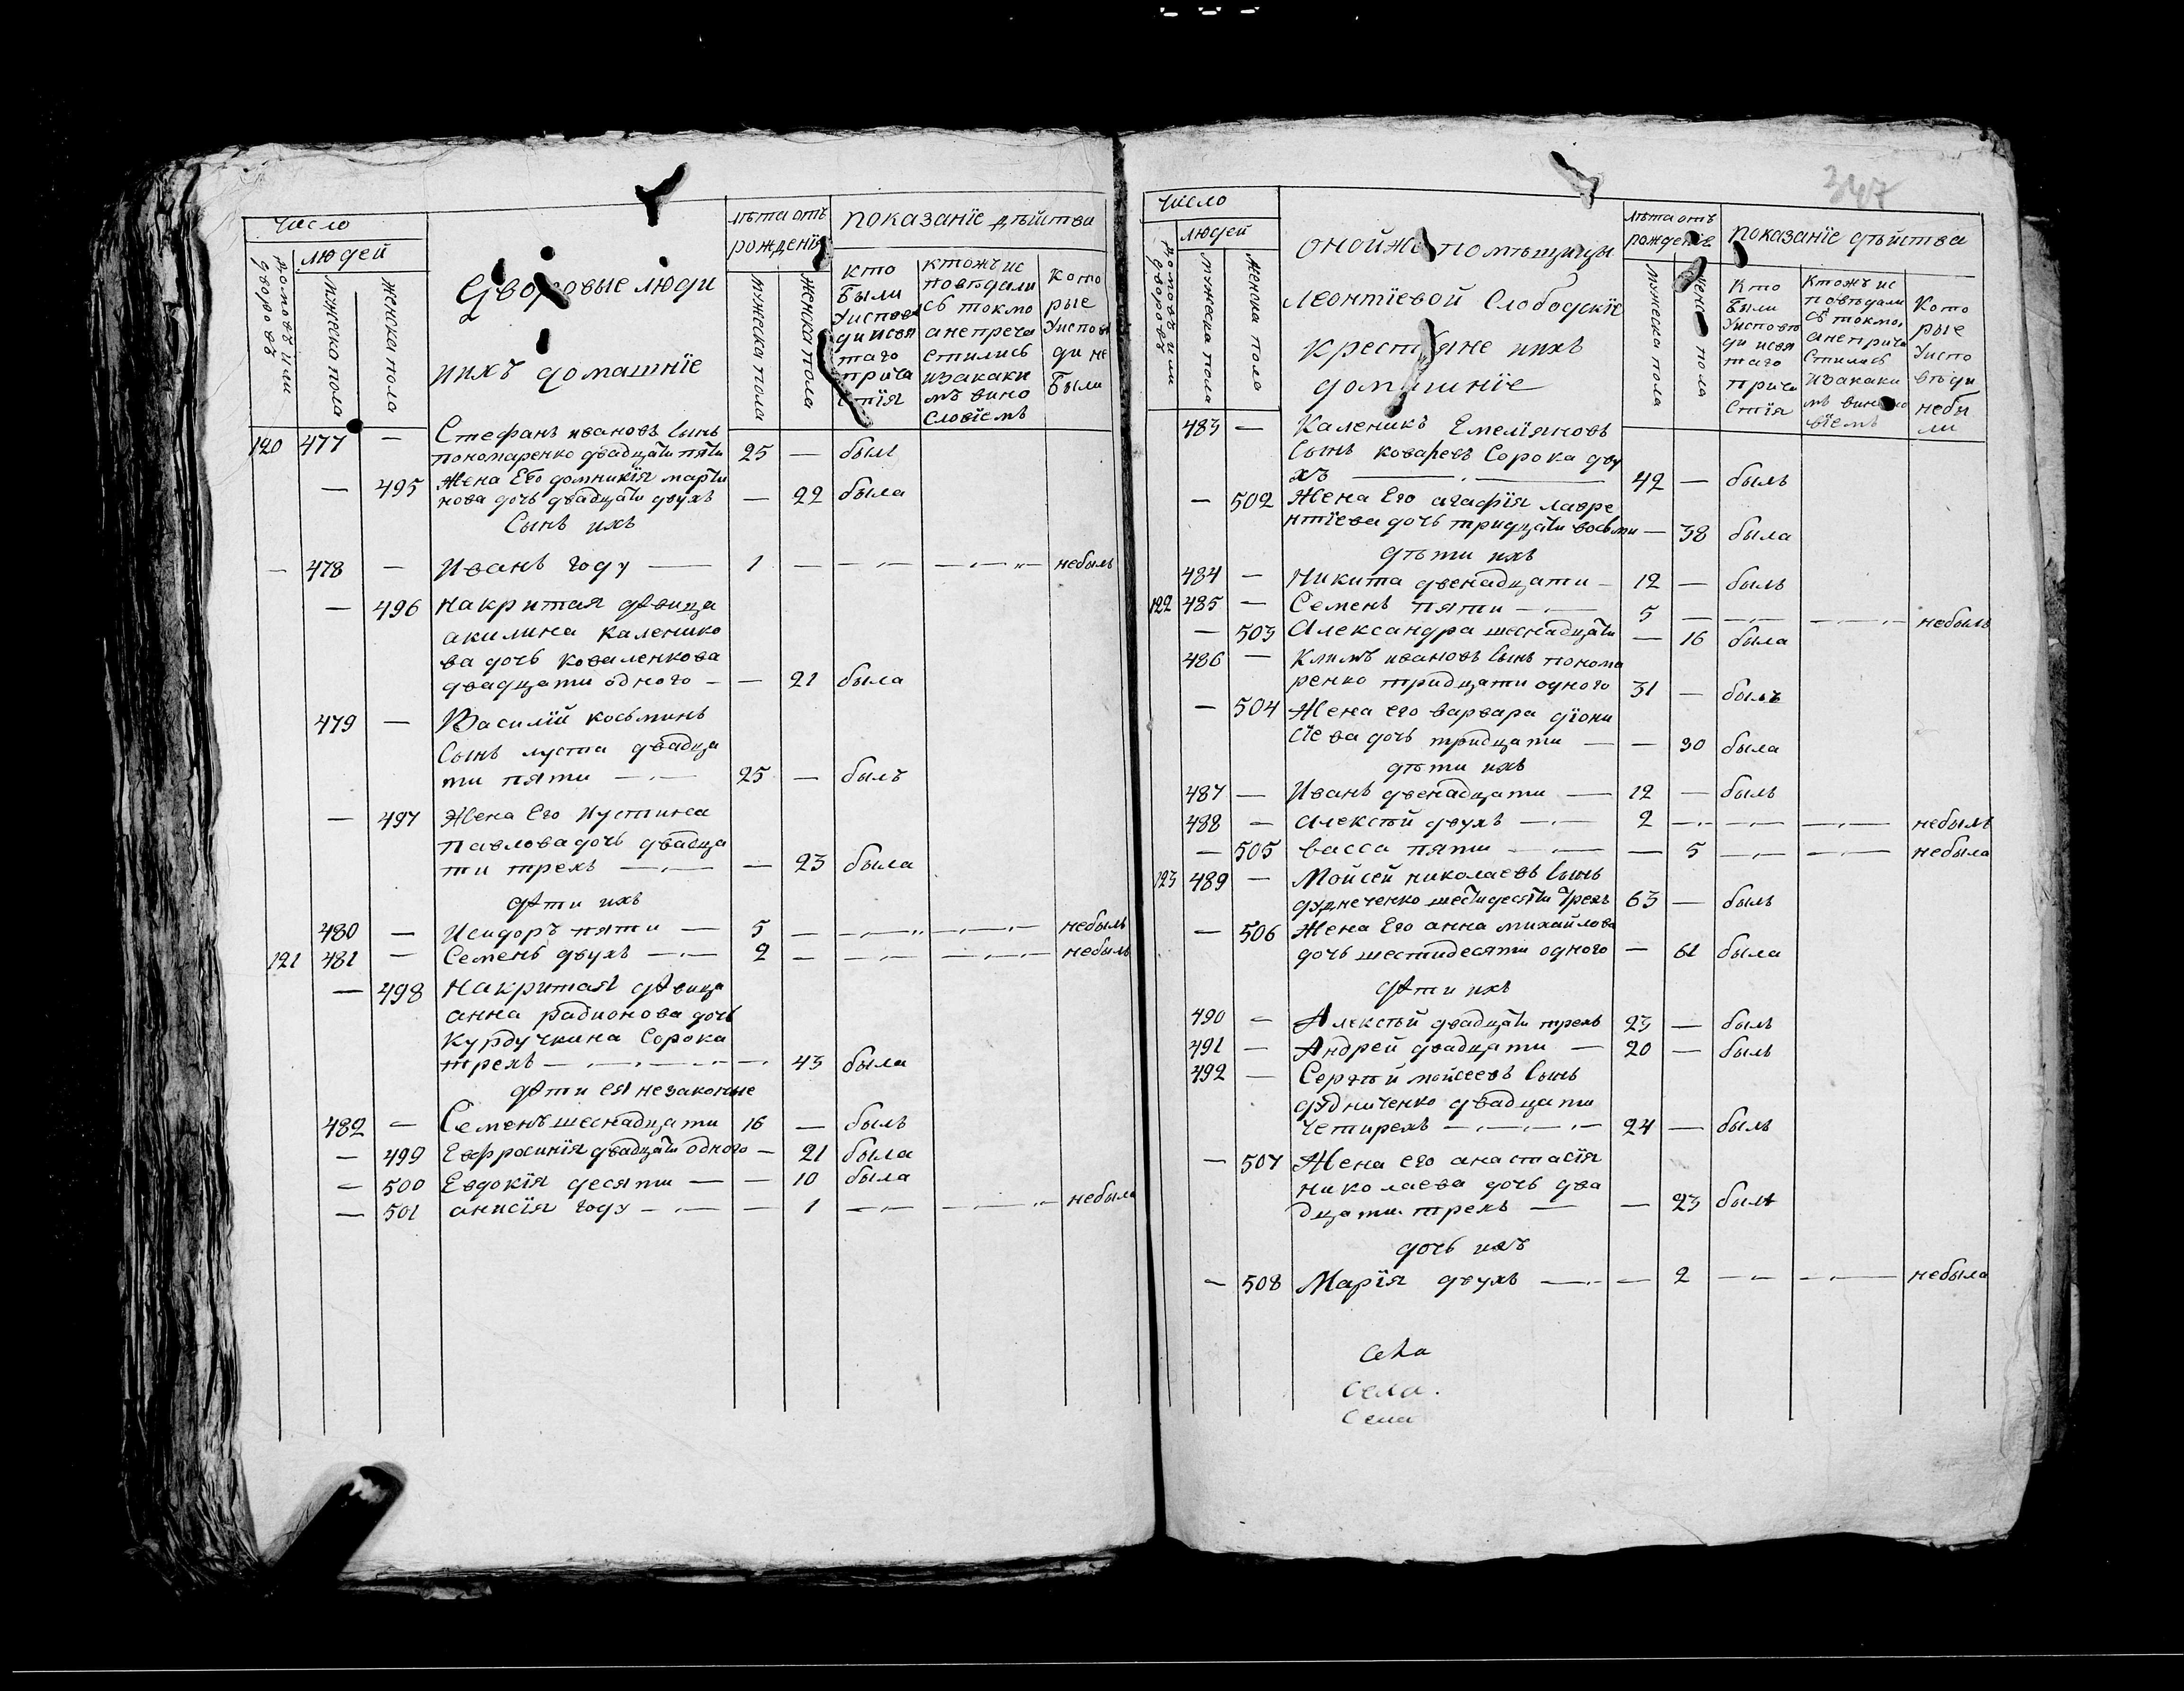 Число
людей
домовъ или дворовъ
мужеска пола
женска пола
Дворовые люди
ихъ домашнїе
лѣта отъ
рожденїя
мужеска пола
женска пола
показанїе дѣйства
кто
были
уиспове
ди исвя
таго
прича
стїя
ктожъ ис
повѣдали
сь токмо
анепреча
стились
изакаки
мъ вино
словїемъ
кото
рые
уиспов
ди не
были
120 477 — Стефанъ ивановъ сынъ
пономаренко двадцати пяти 25 — былъ
— 495 Жена Его домникїя марти
нова дочь двадцати двухъ — 22 была
Сынъ ихъ
— 478 — Иванъ году — 1 — — — небылъ
— 496 Накритая дѣвица
акилина каленико
ва дочь коваленкова
двадцати одного — — 21 была
479 — Василїй косьминъ
сынъ луста двадца
ти пяти — 25 — былъ
— 497 Жена Его Иустина
павлова дочь двадца
ти трехъ — — 23 была
дѣти ихъ
480 — Исидоръ пяти — 5 — — — небылъ
121 481 — Семенъ двухъ — 2 — — — небылъ
— 498 Накритая дѣвица
анна радионова дочь
Курдучкина Сорока
трехъ — — 43 была
дѣти ея незаконые
482 — Семенъ шеснадцати 16 — былъ
— 499 Ефросинїя двадцати одного — 21 была
— 500 Евдокїя десяти — — 10 была
— 501 анисїя году — — 1 — — небыла
347
Число
людей
домовъ или дворовъ
мужеска пола
женска пола
онойже помѣщицы
леонтїевой Слободскїе
крестяне ихъ
домашнїе
лѣта отъ
рожденїя
мужеска пола
женска пола
показанїе дѣйства
Кто
были
уисповѣ
ди исвя
таго
прича
стїя
Ктожъ ис
повѣдали
сь токмо
анеприча
стились
изакаки
мъ винсло
вїемъ
Кото
рые
уиспо
вѣди
небы
ли
483 — Каленикъ Емелїяновъ
сынъ коваревъ Сорока дву
хъ — 42 — былъ
— 502 Жена Его агафїя лавре
нтїева дочь тридцати восьми — 38 была
дѣти ихъ
484 — Никита двенадцати — 12 — былъ
122 485 — Семенъ пяти — 5 — — — небылъ
— 503 Александра шеснадцати — 16 была
486 — Климъ ивановъ сынъ понома
ренко тридцати одного 31 — былъ
— 504 Жена его варвара дїони
сїева дочь тридцати — — 30 была
дѣти ихъ
487 — Иванъ двенадцати — 12 — былъ
488 — Алексѣй двухъ — 2 — — — небылъ
— 505 васса пяти — — 5 — — небыла
123 489 — Мойсей николаевъ сынъ
дудниченко шестидесяти трехъ 63 — былъ
— 506 Жена Его анна михайлова
дочь шестидесяти одного — 61 была
дѣти ихъ
490 — Алексѣй двадцати трехъ 23 — былъ
491 — Андрей двадцати — 20 — былъ
492 — Сергѣй мойсеевъ сынъ
дудниченко двадцати
четирехъ — 24 — былъ
— 507 Жена его анастасїя
николаева дочь два
дцати трехъ — — 23 была
дочь ихъ
— 508 Марїя двухъ — — 2 — — небыла
Села
Села.
Села